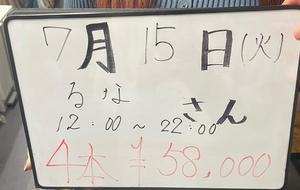 7月15日(火)
るな さん
12:00～22:00
4本 ¥58,000